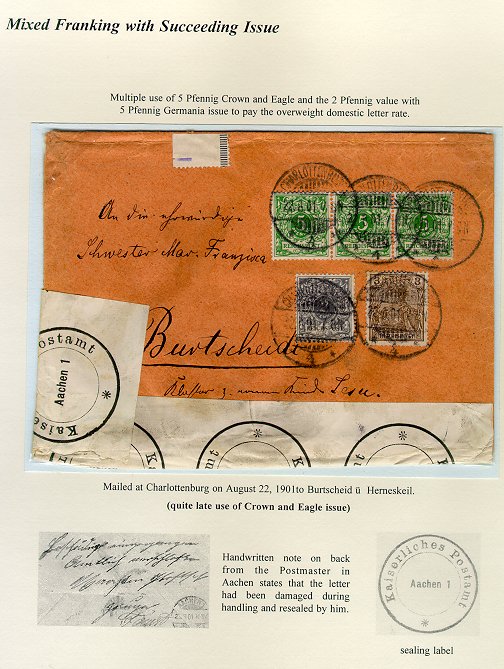 Mixed Franking with Succeeding Issue
Multiple use of 5 Pfennig Crown and Eagle and the 2 Pfennig value with
5 Pfennig Germania issue to pay the overweight domestic letter rate.
CHARLOTTENBURG
5 5 5
3 3
An die ehrwürdige
Schwester Mar. Franzisca
Burtscheid
Kloster z. armen Kinde Jesu.
Postamt
Aachen 1
Kaise
Mailed at Charlottenburg on August 22, 1901to Burtscheid ü Herneskeil.
(quite late use of Crown and Eagle issue)
Handwritten note on back
from the Postmaster in
Aachen states that the letter
had been damaged during
handling and resealed by him.
Kaiserliches Postamt
Aachen 1
sealing label